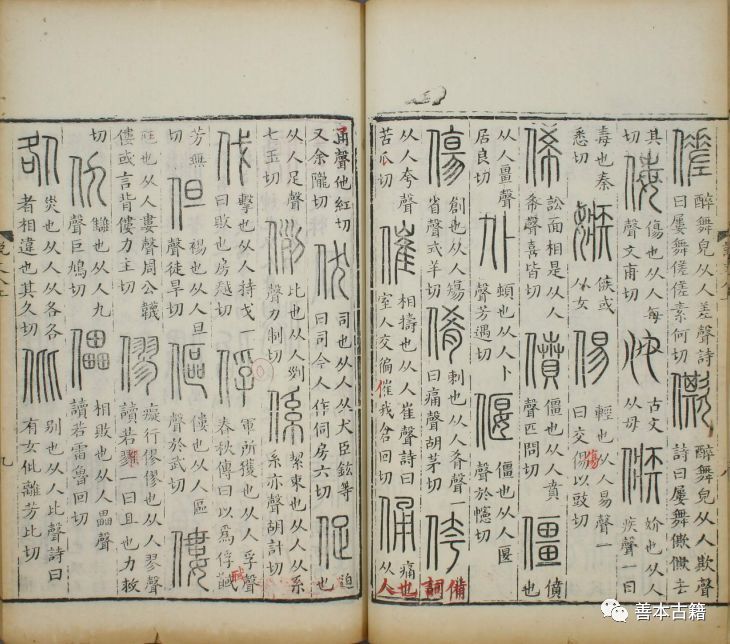 傞醉舞皃从人差聲詩曰屢舞傞傞素何切僛醉舞皃从人欺聲詩曰屢舞僛僛去
其切侮傷也从人每聲文甫切㑄古文从母㑵妎也从人疾聲一曰
毒也秦悉切嫉㑵或从女㑥輕也从人易聲一曰交傷以豉切
俙訟面相是从人希聲喜皆切僨僵也从人賁聲匹問切僵僨也
从人畺聲居良切仆頓也从人卜聲芳遇切偃僵也从人匽聲於幰切
傷創也从人省聲式羊切㑾刺也从人肴聲一曰痛聲胡茅切侉備詞
从人夸聲苦瓜切催相擣也从人崔聲詩曰室人交徧催我倉回切俑痛也从人
甬聲他紅切又余隴切伏司也从人从犬臣鉉等曰司今人作伺房六切促迫也
从人足聲七玉切例比也从人𠛱聲力制切係絜束也从人从系系亦聲胡計切
伐擊也从人持戈一曰敗也房越切俘軍所獲也从人孚聲春秋傳曰以爲俘聝
芳無切但裼也从人旦聲徒旱切傴僂也从人區聲於武切僂
尫也从人婁聲周公韤僂或言背僂力主切僇癡行僇僇也从人翏聲讀若一曰且也力救
切仇讎也从人九聲巨鳩切儡相敗也从人畾聲讀若雷魯回切
咎災也从人从各各者相違也其久切仳別也从人比聲詩曰有女仳離芳比切
九
善本古籍